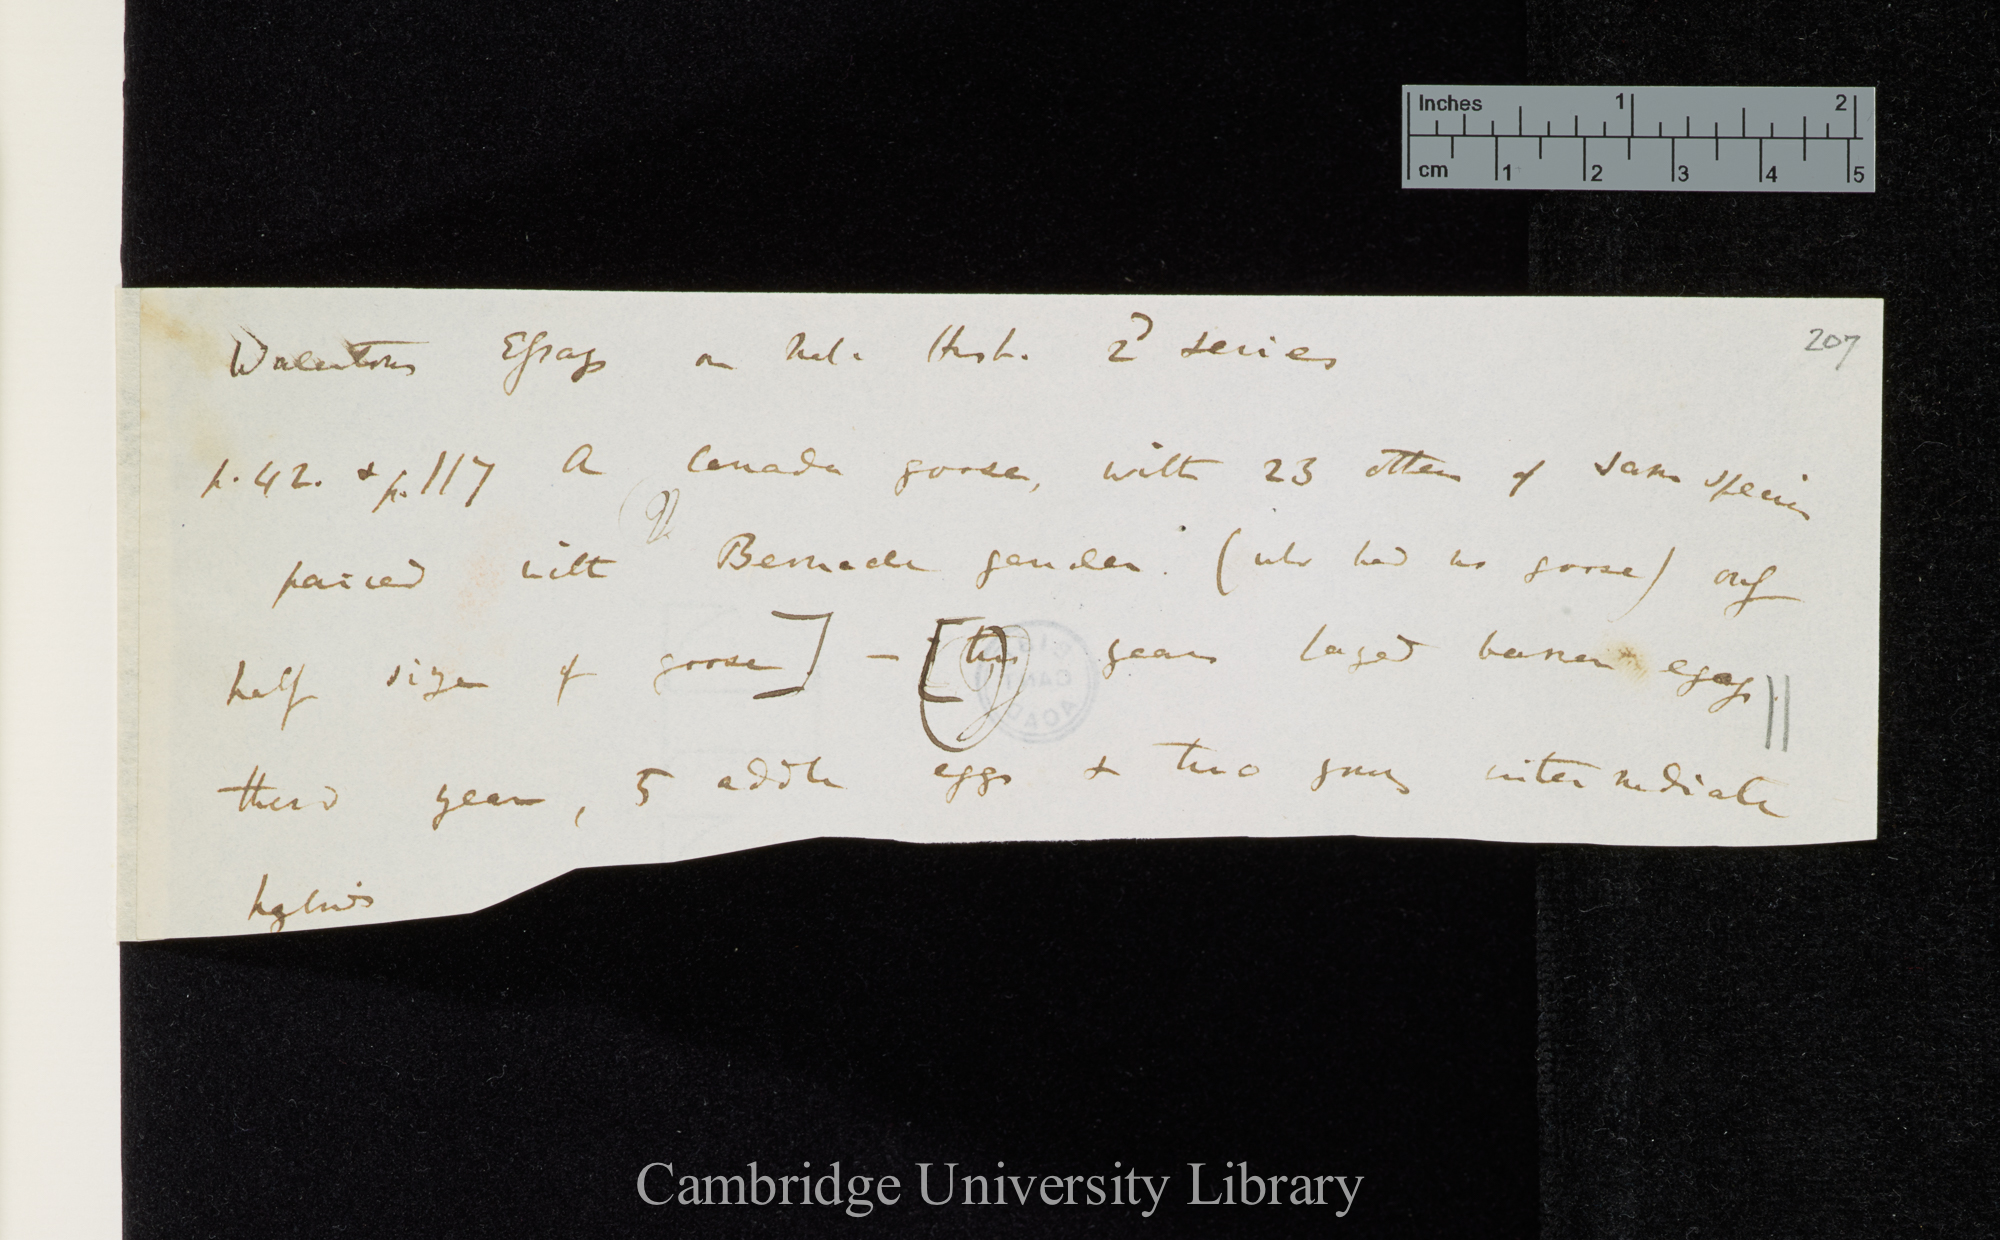 Inches 1 2
cm 1 2 3 4 5
207
Waterton's Essays on Nat. Hist. 2d series
p. 42. & p. 117 A Canada goose, with 23 others of same species
paired with Bernacle gander. (who had no goose) only
half size of goose] — [two years layed barren eggs
third year, 5 addle eggs & two young intermediate
hybrids
Cambridge University Library